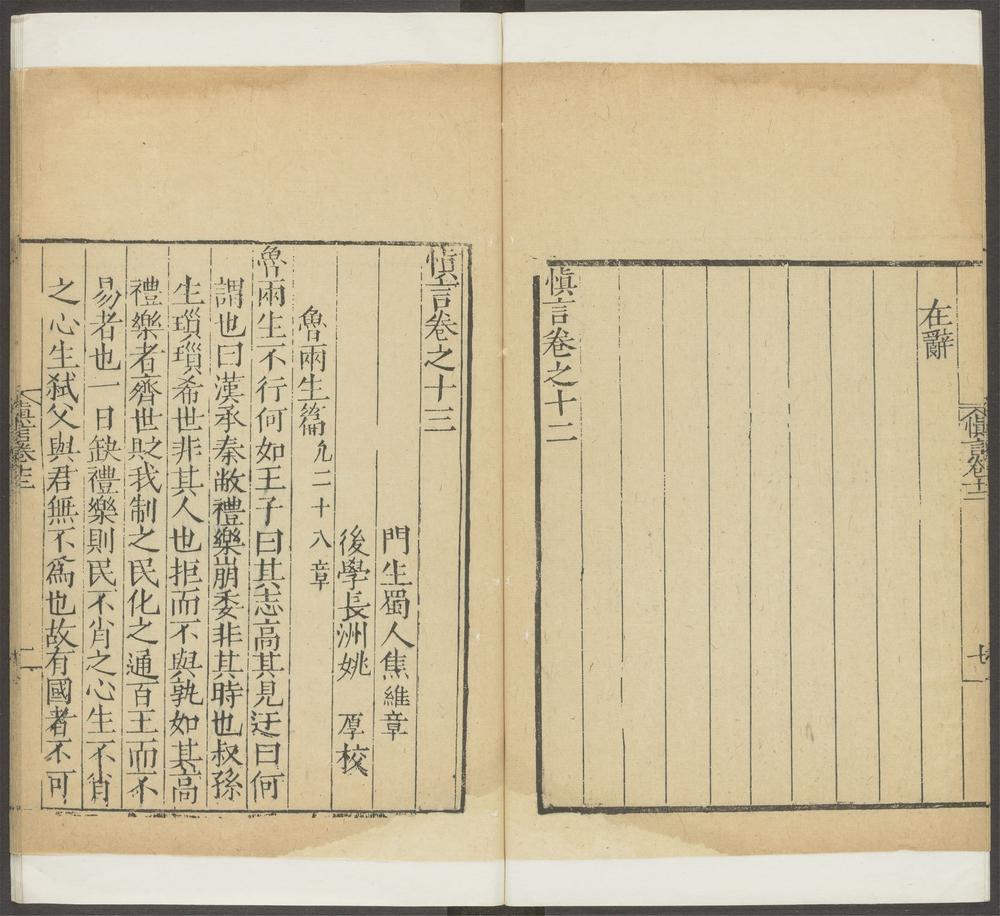 慎言卷十二
七
在辭
慎言卷之十二
慎言卷之十三
門生蜀人焦維章
後學長洲姚 厚校
魯兩生篇凢二十八章
魯兩生不行何如王子曰其志高其見迂曰何
謂也曰漢承秦敝禮樂崩委非其時也叔孫
生瑣瑣希世非其人也拒而不與孰如其高
禮樂者齊世貶我制之民化之通百王而不
易者也一日缺禮樂則民不肖之心生不肖
之心生弑父與君無不爲也故有國者不可
慎言卷十三